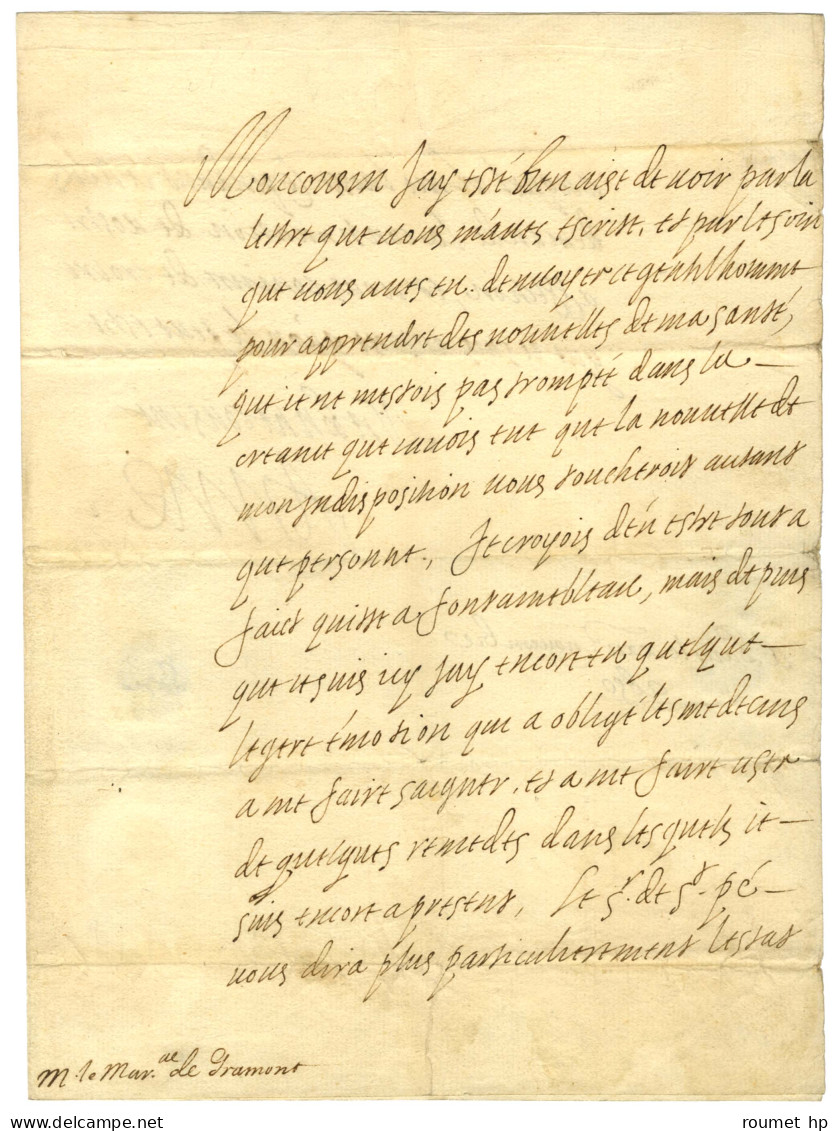 Mon cousin Jay esté bien aise de voir par la
lettre que vous m'aues escrite, et par le soin
que vous aues eu. denuoyer ce gentilhomme
pour apprendre des nouuelles de ma santé,
que ie ne mestois pas trompée dans la
creance que iauois eue que la nouuelle de
mon Indisposition vous toucheroit autant
que personne, Je croyois d'en estre tout a
faict quitte a fontainebleau, mais depuis
que ie suis icy Jay encore eu quelque
legere émotion qui a obligé les medecins
a me faire saigner, et a me faire user
de quelques remedes dans lesquels ie
suis encore apresent, Le Sr. de St. pé
vous dira plus particulierement lestat
M. le Mar.al de Gramont
roumet hp